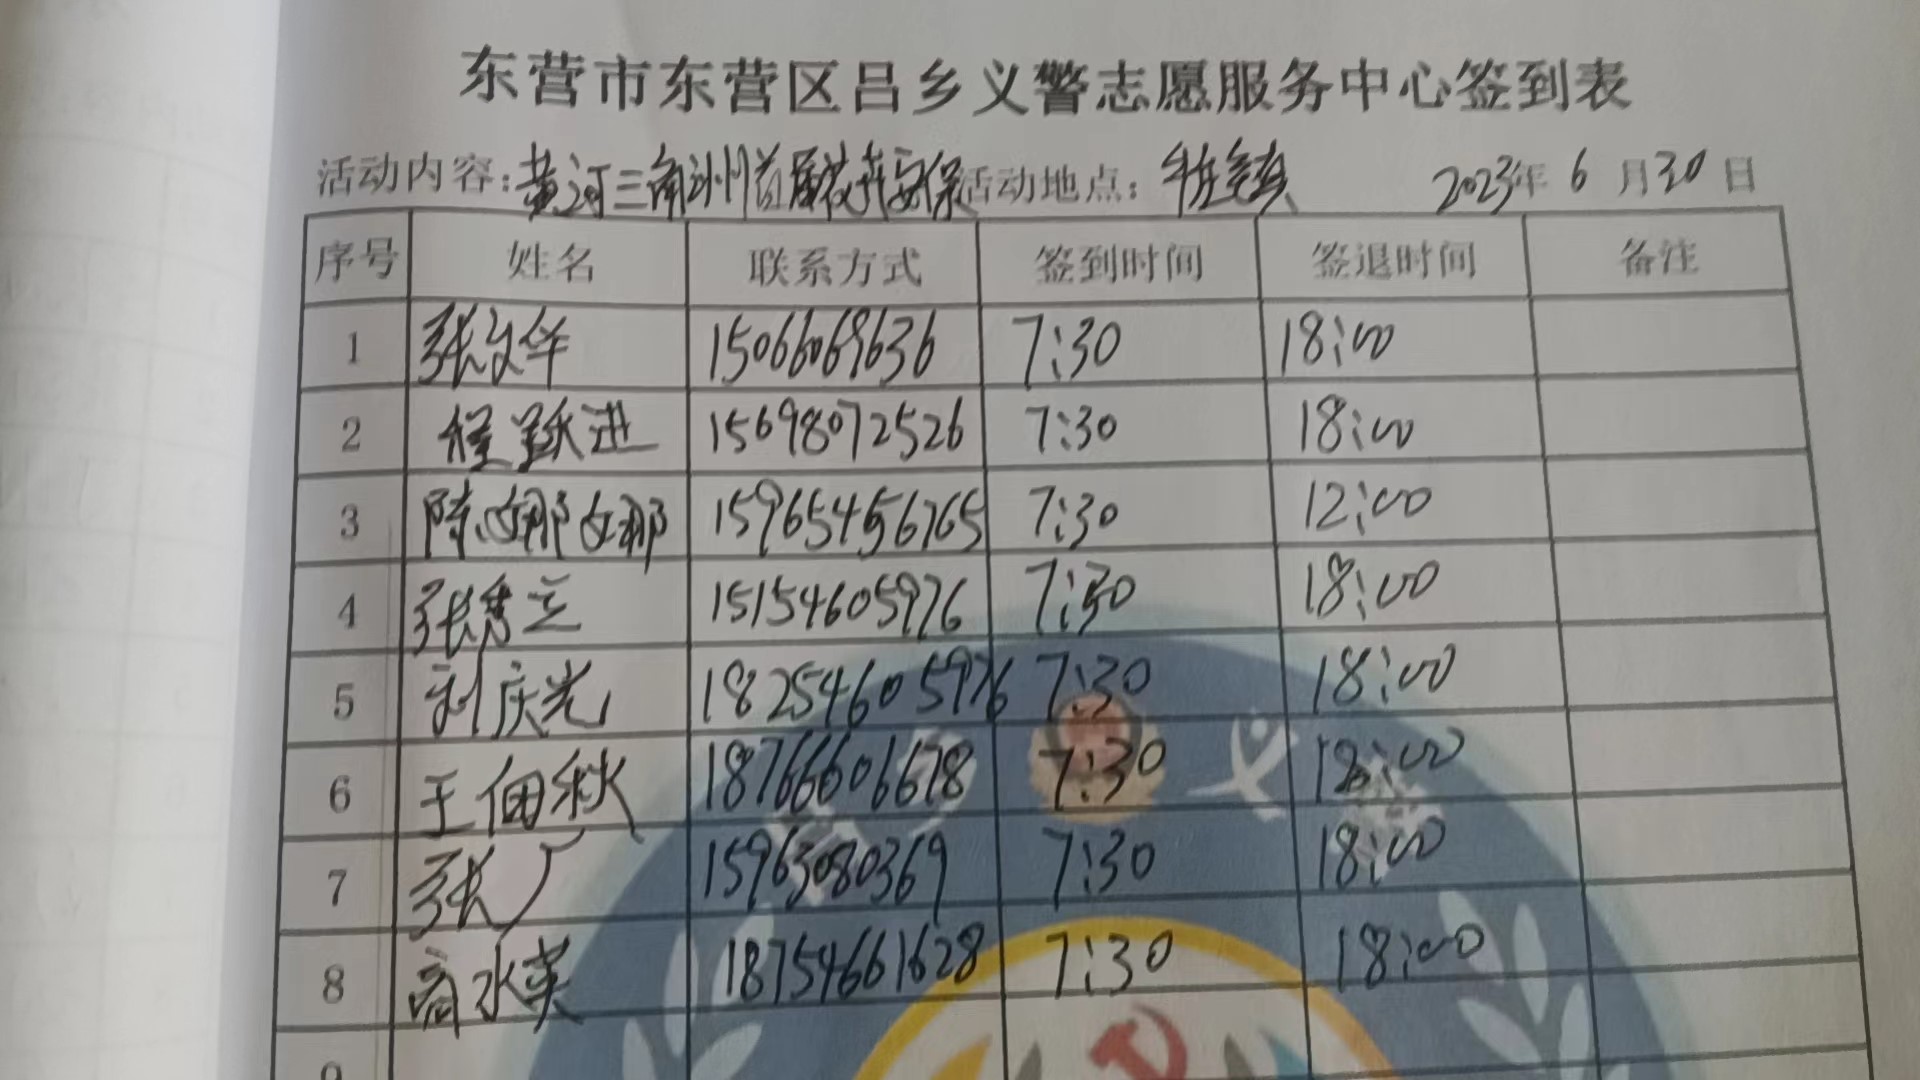 东营市东营区吕乡义警志愿服务中心签到表
活动内容：黄河三角洲首届花卉安保 活动地点： 2023年 6 月 30 日
序号 姓名 联系方式 签到时间 签退时间 备注
1 张文华 15066069636 7:30 18:00
2 程跃进 15698072526 7:30 18:00
3 陈娜娜 15965456765 7:30 12:00
4 张秀兰 15154605976 7:30 18:00
5 刘庆光 18254605976 7:30 18:00
6 王佃秋 18766606678 7:30 18:00
7 张广 15963080369 7:30 18:00
8 商水英 18754661628 7:30 18:00
9